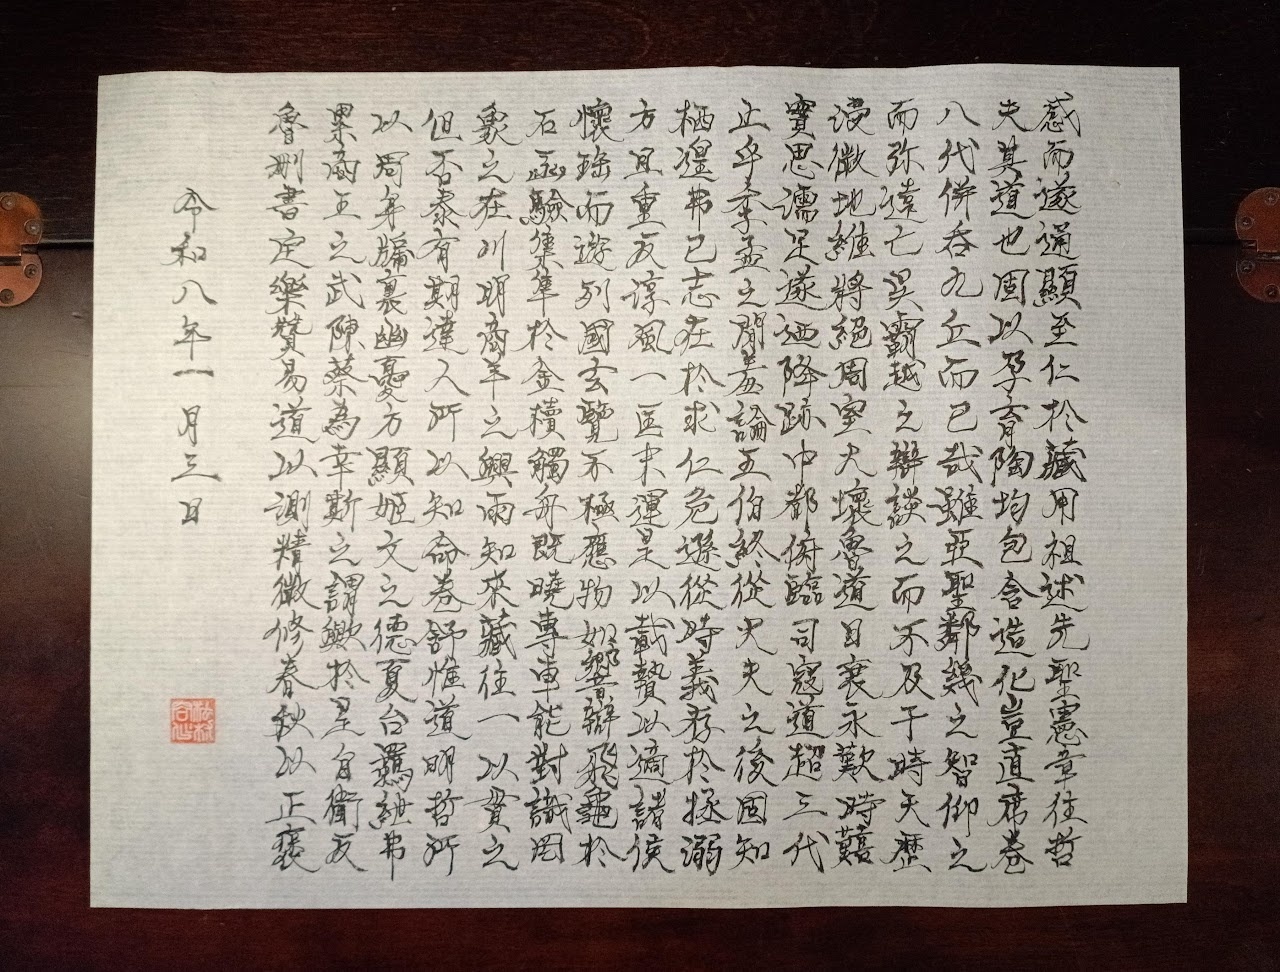 感而遂通顯至仁於藏用祖述先聖憲章往哲
夫其道也固以孕育陶均包含造化豈直席卷
八代併吞九丘而已哉雖亞聖鄰幾之智仰之
而弥遠亡吴霸越之辯談之而不及于時天歷
浸微地維將絕周室大壞魯道日衰永歎時艱
實思濡足遂迺降跡中都俯臨司寇道超三代
止乎季孟之間羞論五伯終從大夫之後固知
栖遑弗已志在於求仁危遜從時義存於拯溺
方且重反淳風一匡末運是以載贄以適諸侯
懷珎而遊列國玄覽不極應物如響辯飛龜於
石函驗集隼於金櫝觸舟既曉專車能對識罔
象之在川明商羊之興雨知來藏往一以貫之
但否泰有期達人所以知命卷舒惟道明哲所
以周身牖裏幽憂方顯姬文之德夏台羈紲弗
累商王之武陳蔡為幸斯之謂歟於是自衛反
魯刪書定樂贊易道以測精微修春秋以正褒
令和八年一月三日